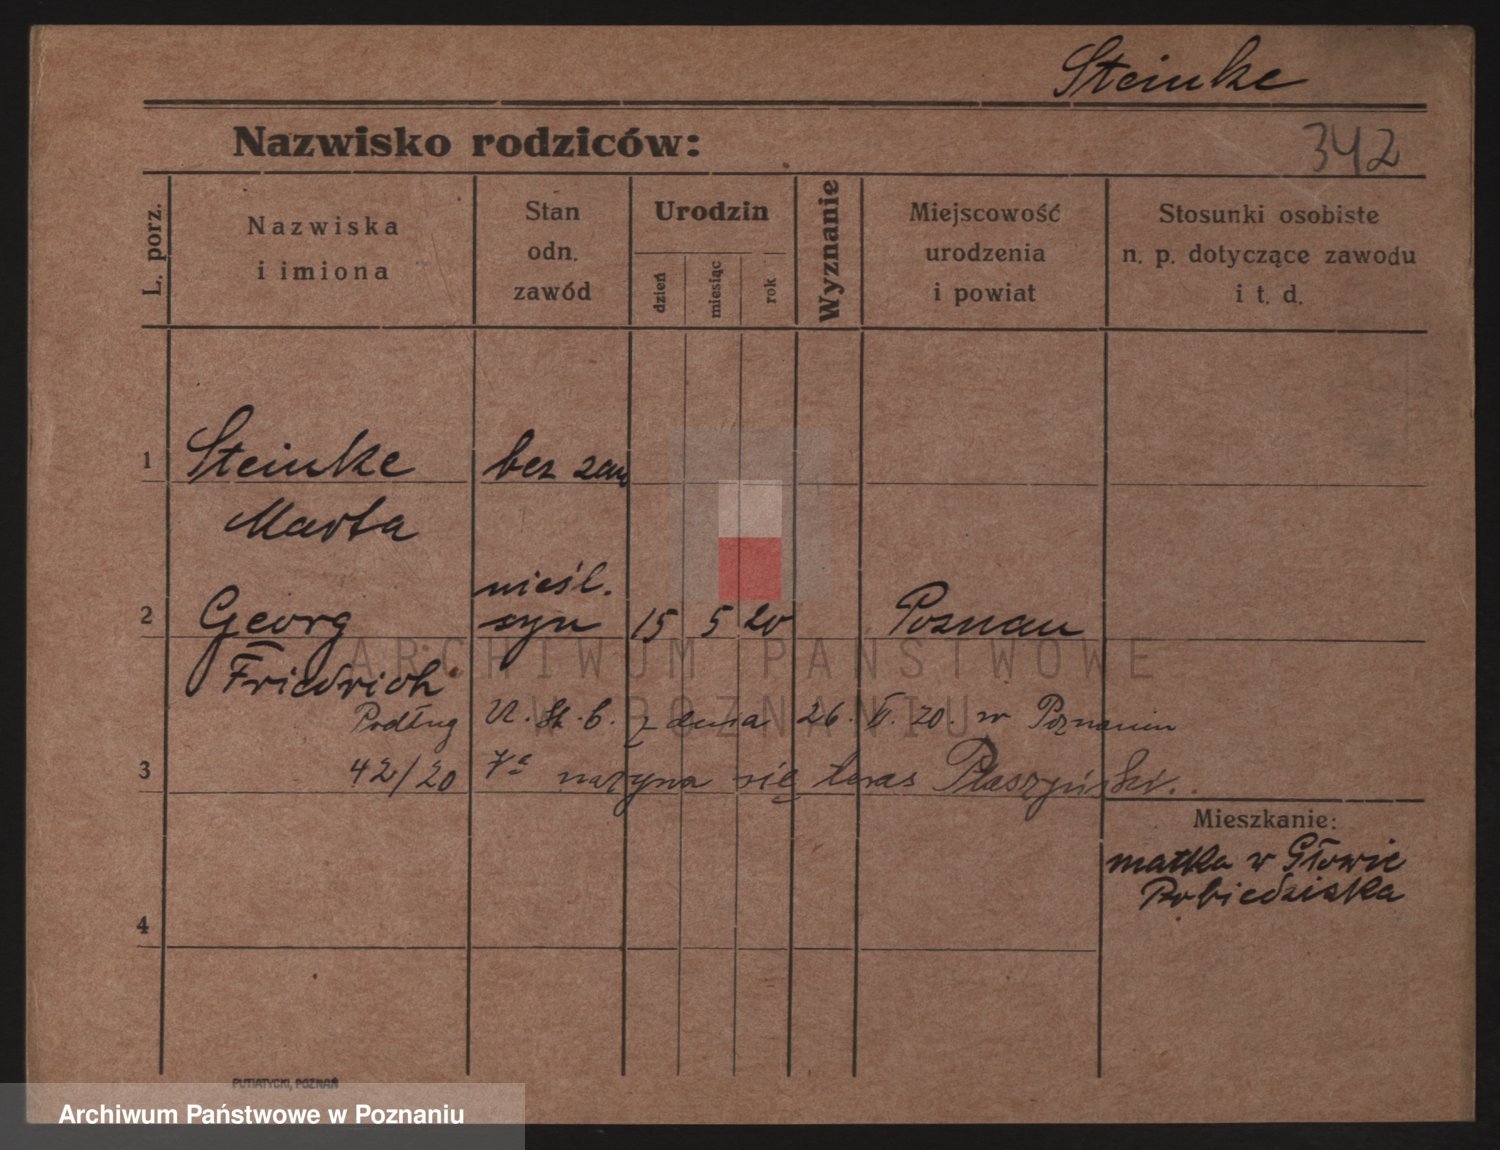 Steinke
Nazwisko rodziców:
342
L. porz.
Nazwiska
i imiona
Stan
odn.
zawód
Urodzin
dzień
miesiąc
rok
Wyznanie
Miejscowość
urodzenia
i powiat
Stosunki osobiste
n. p. dotyczące zawodu
i t. d.
1 Steinke bez zaw
Marta
nieśl.
2 Georg syn 15 5 20 Poznau
Friedrich
Podług U. St. b. z dnia 26. 20. w Poznaniu
3 42/20 nazywa się teras Płaszyński.
Mieszkanie:
matka w Głowie
Pobiedziska
4
ARCHIWUM PAŃSTWOWE
W POZNANIU
PUTIATYCKI, POZNAŃ
Archiwum Państwowe w Poznaniu